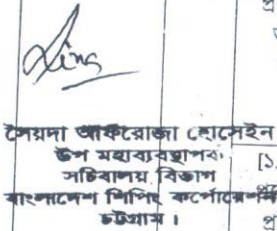 সৈয়দা আফরোজা হোসেইন
উপ মহাব্যবস্থাপক
সচিবালয় বিভাগ
বাংলাদেশ শিপিং কর্পোরেশন
চট্টগ্রাম।
[১.